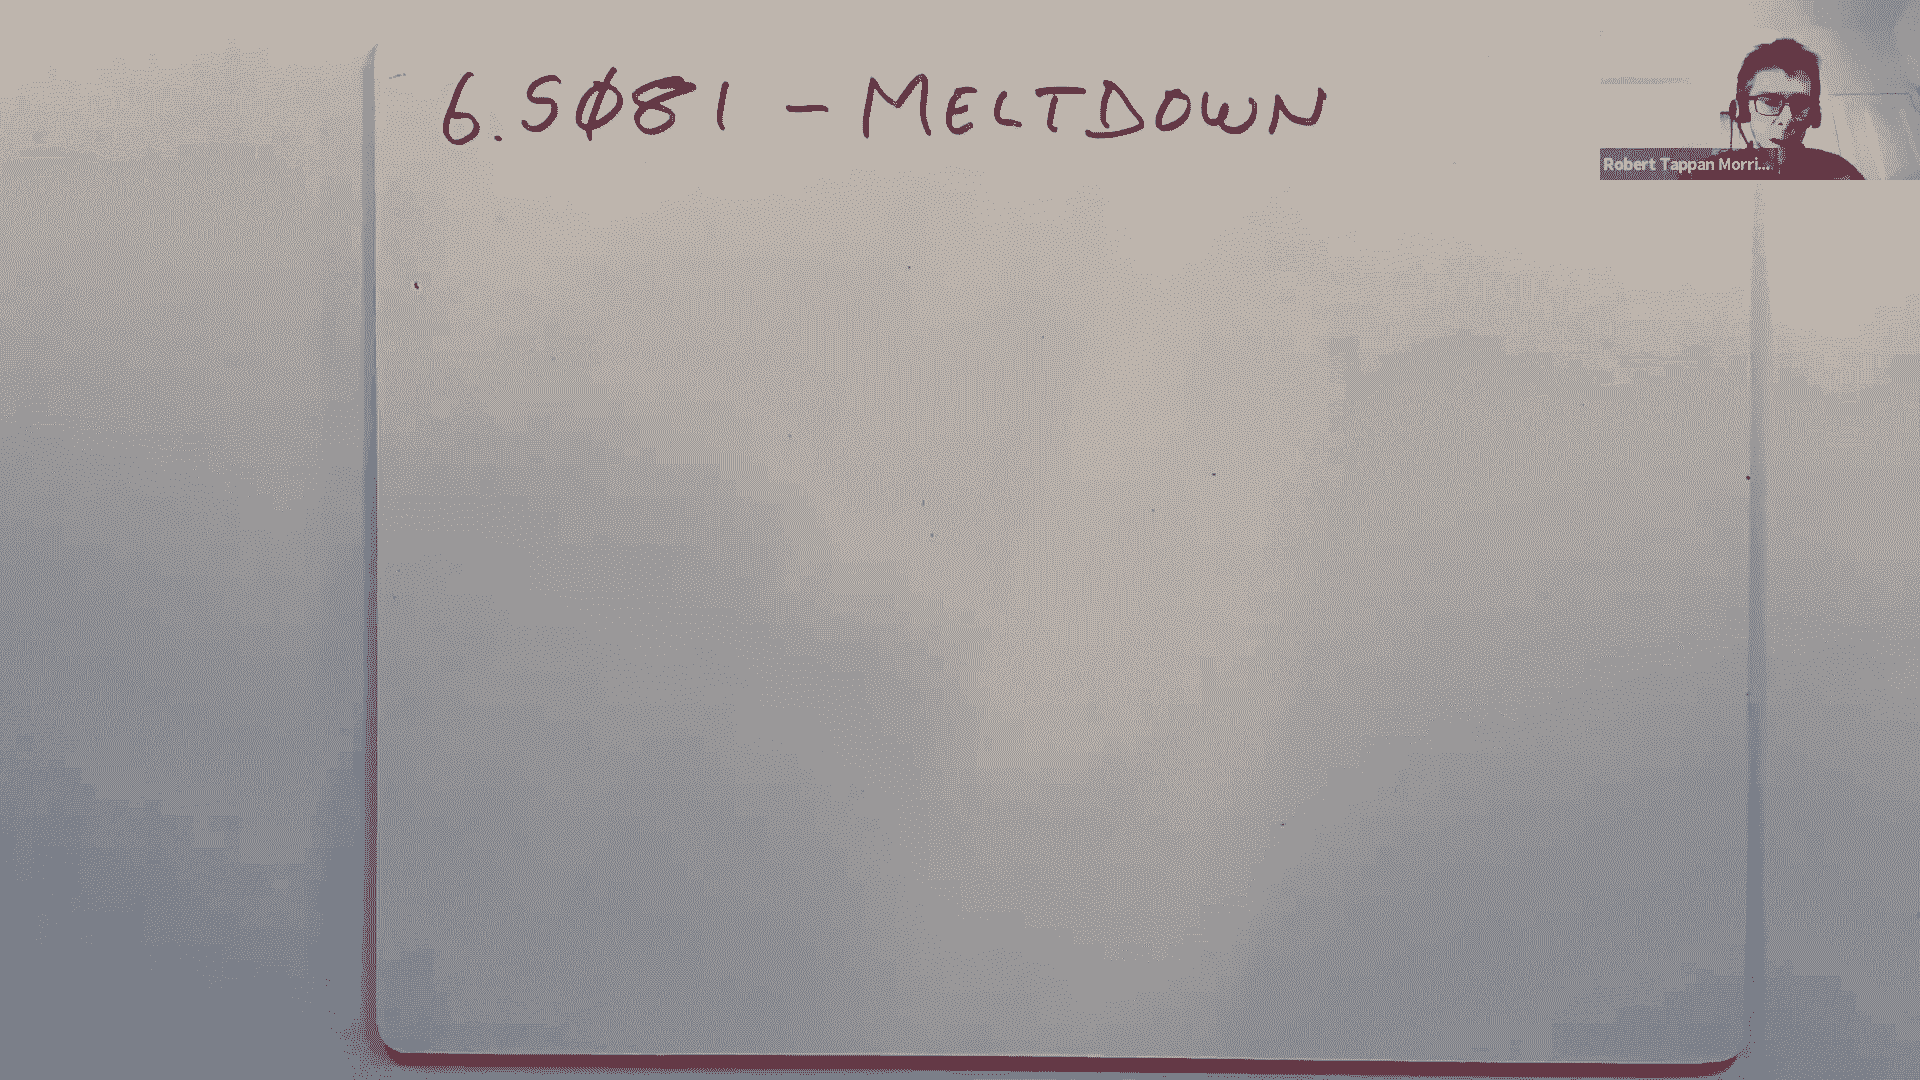 6.SØ81 - MELTDOWN
Robert Tappan Morri...